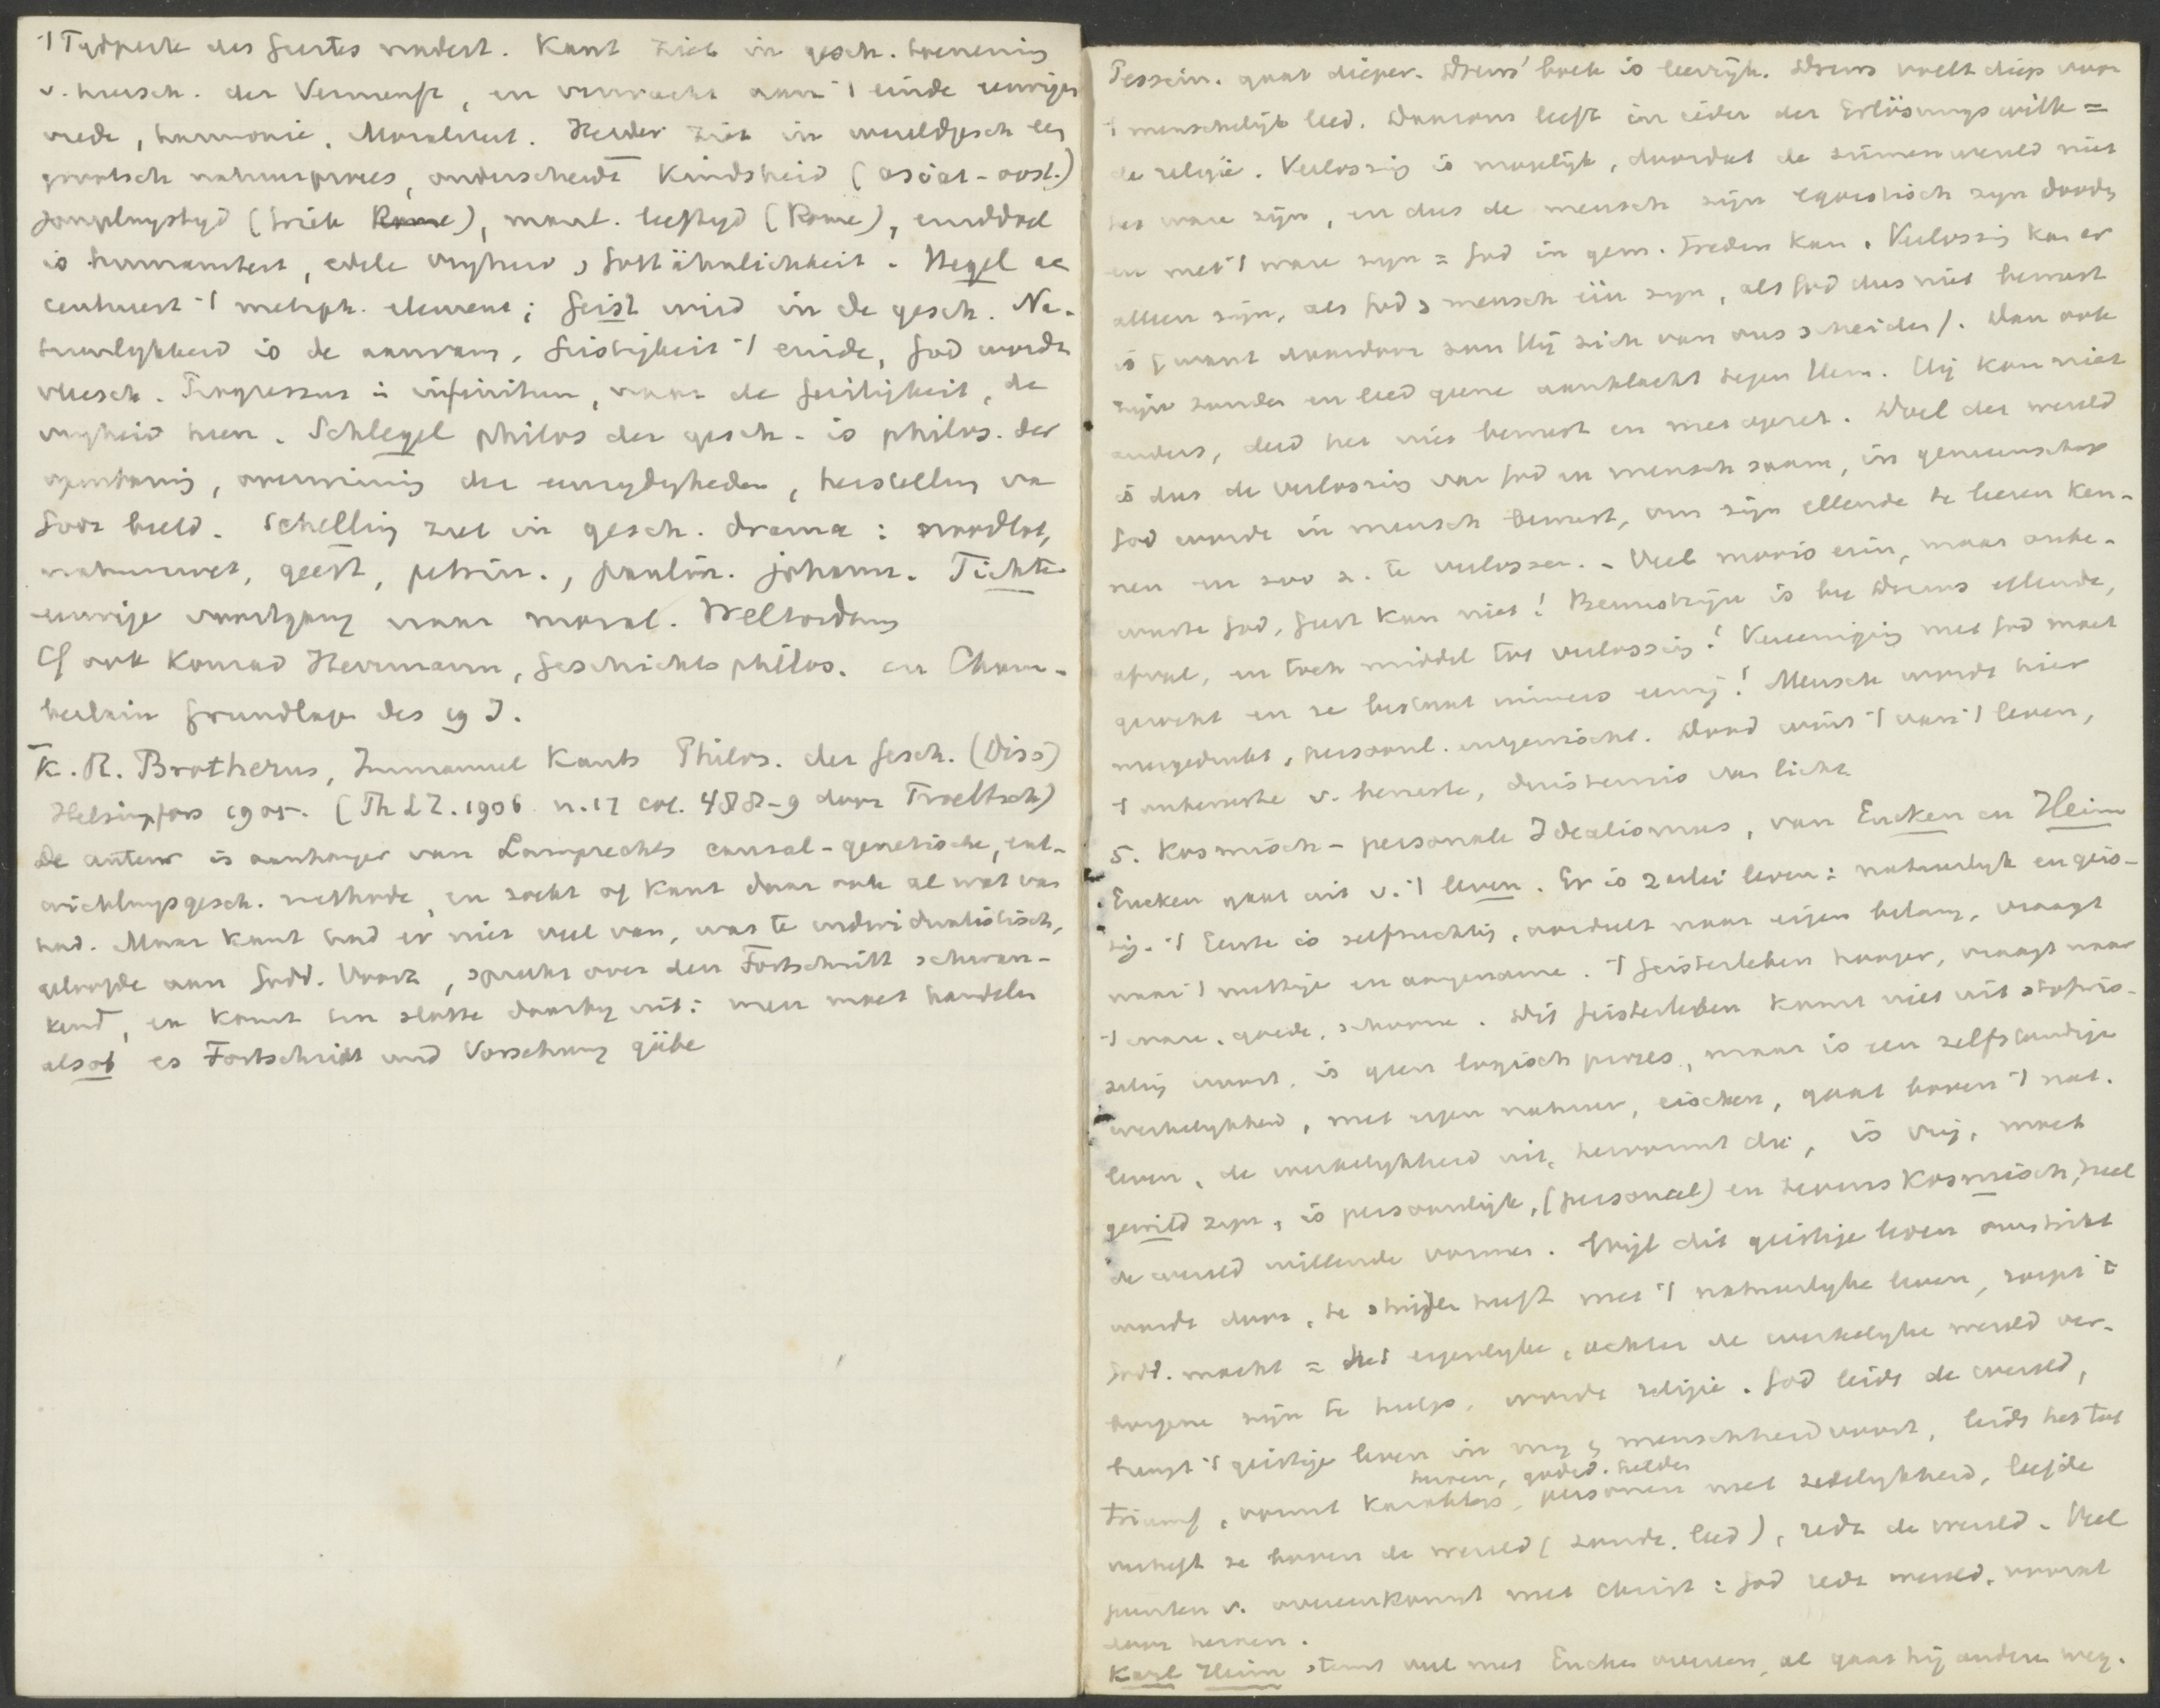 't Tydperk des Geistes nadert. Kant ziet in gesch. toeneming
v. heersch. der Vernunft, en verwacht aan 't einde eeuwigen
vrede, harmonie, Moraliteit. Herder ziet in wereldgesch een
grootsch natuurproces, onderscheidt Kindsheid (asiat-oost.)
jongelingstyd (Griek Rome), mannl. leeftyd (Rome), einddoel
is humaniteit, edele vryheid, Gottähnlichkeit. Hegel ac
centueert 't metaph. element; Geist wird in de gesch. Na-
tuurlykheid is de aanvang, Geistigkeit 't einde, God wordt
vleesch. Progressus in infinitum, naar de Geistigkeit, de
vryheid heen. Schlegel philos der gesch. is philos. der
openbaring, overwinning der eenzydigheden, herstelling van
Gods beeld. Schelling ziet in gesch. drama: noodlot,
natuurwet, geest, petrin., paulin. johann. Fichte
eeuwige voortgang naar moral. Weltordnung
Cf ook Konrad Hermann, Geschichtsphilos. en Cham-
berlain Grundlage des 19 J.
K. R. Brotherus, Immanuel Kants Philos. der Gesch. (Diss)
Helsingfors 1905. (Th LZ. 1906 n. 17 col. 488-9 door Troeltsch)
De auteur is aanhanger van Lamprechts causal-genetische, ent-
wicklungsgesch. methode, en zoekt of Kant daar ook al wat van
had. Maar Kant had er niet veel van, was te individualistisch,
geloofde aan Godd. Voorz, spreekt over den Fortschritt schwan-
kend, en komt ten slotte daarby uit: men moet handelen
alsob es Fortschritt und Vorsehung gäbe
Pessim. gaat dieper. Drews' boek is leerryk. Drews voelt diep voor
't menschelyk leed. Daarom leeft in ieder der Erlösungswille =
de religie. Verlossing is mogelyk, doordat de zinnenwereld niet
het ware zijn, en dus de mensch zijn egoistisch zyn dooden
en met 't ware zyn = God in gem. treden kan. Verlossing kan er
alleen zijn, als God & mensch één zyn, als God dus niet bewust
is (want daardoor zou Hij zich van ons scheiden). Dan ook
zijn zonde en leed geene aanklacht tegen Hem. Hij kon niet
anders, deed het niet bewust en met opzet. Doel der wereld
is dus de verlossing van God en mensch saam, in gemeenschap
God wordt in mensch bewust, om zijn ellende te leeren ken-
nen en zoo z. te verlossen. - Veel moois erin, maar onbe-
wuste God, Geist kan niet! Bewustzijn is by Drews ellende,
afval, en toch middel tot verlossing! Vereeniging met God moet
gezocht en ze bestaat immers eeuwig! Mensch wordt hier
weggedrukt, personl. uitgewischt. Dood wint 't van 't leven,
't onbewuste v. bewuste, duisternis van licht.
5. Kosmisch-personale Idealismus, van Eucken en Heim
Eucken gaat uit v. 't leven. Er is 2erlei leven: natuurlyk en geis-
tig. 't Eerste is zelfzuchtig, oordeelt naar eigen belang, vraagt
naar 't nuttige en aangename. 't Geistesleben hooger, vraagt naar
't ware, goede, schoone. Dit Geistesleben komt niet uit stofwis-
seling voort, is geen logisch proces, maar is een zelfstandige
werkelykheid, met eigen natuur, eischen, gaat boven 't nat.
leven, de werkelykheid uit, hervormt die, is vrij, moet
gewild zyn, is persoonlyk, (personeel) en tevens Kosmisch, heel
de wereld willende vormen. Wyl dit geistige leven omstrikt
wordt door, te strijden heeft met 't natuurlyke leven, roept 't
Godd. macht = het eigenlyke, achter de werkelyke wereld ver-
borgene zijn te hulp, wordt religie. God leidt de wereld,
brengt 't geistige leven in my & menschheid voort, leidt het tot
heroen, godsd. helden
triumf, vormt karakters, personen met zedelykheid, liefde
verheft ze boven de wereld (zonde, leed), redt de wereld. Veel
punten v. overeenkomst met Christ: God redt wereld, vooral
door heroen.
Karl Heim stemt veel met Eucken overeen, al gaat hij andere weg.